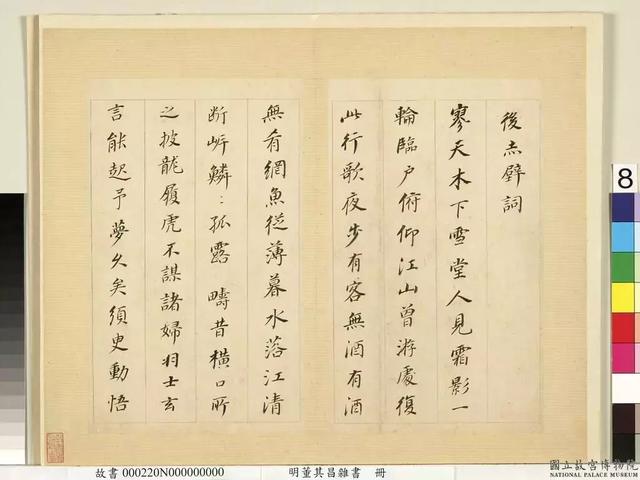 後赤壁詞
寥天木下雪堂人見霜影一
輪臨戶俯仰江山曾游處復
此行歌夜步有客無酒有酒
無肴網魚從薄暮水落江清
断岍鱗﹕孤露疇昔橫口所
之披龍履虎不謀諸婦羽士玄
言能起予夢久矣須臾動悟
8
故書 000220N000000000
明董其昌雜書 冊
國立故宮博物院
NATIONAL PALACE MUSEUM